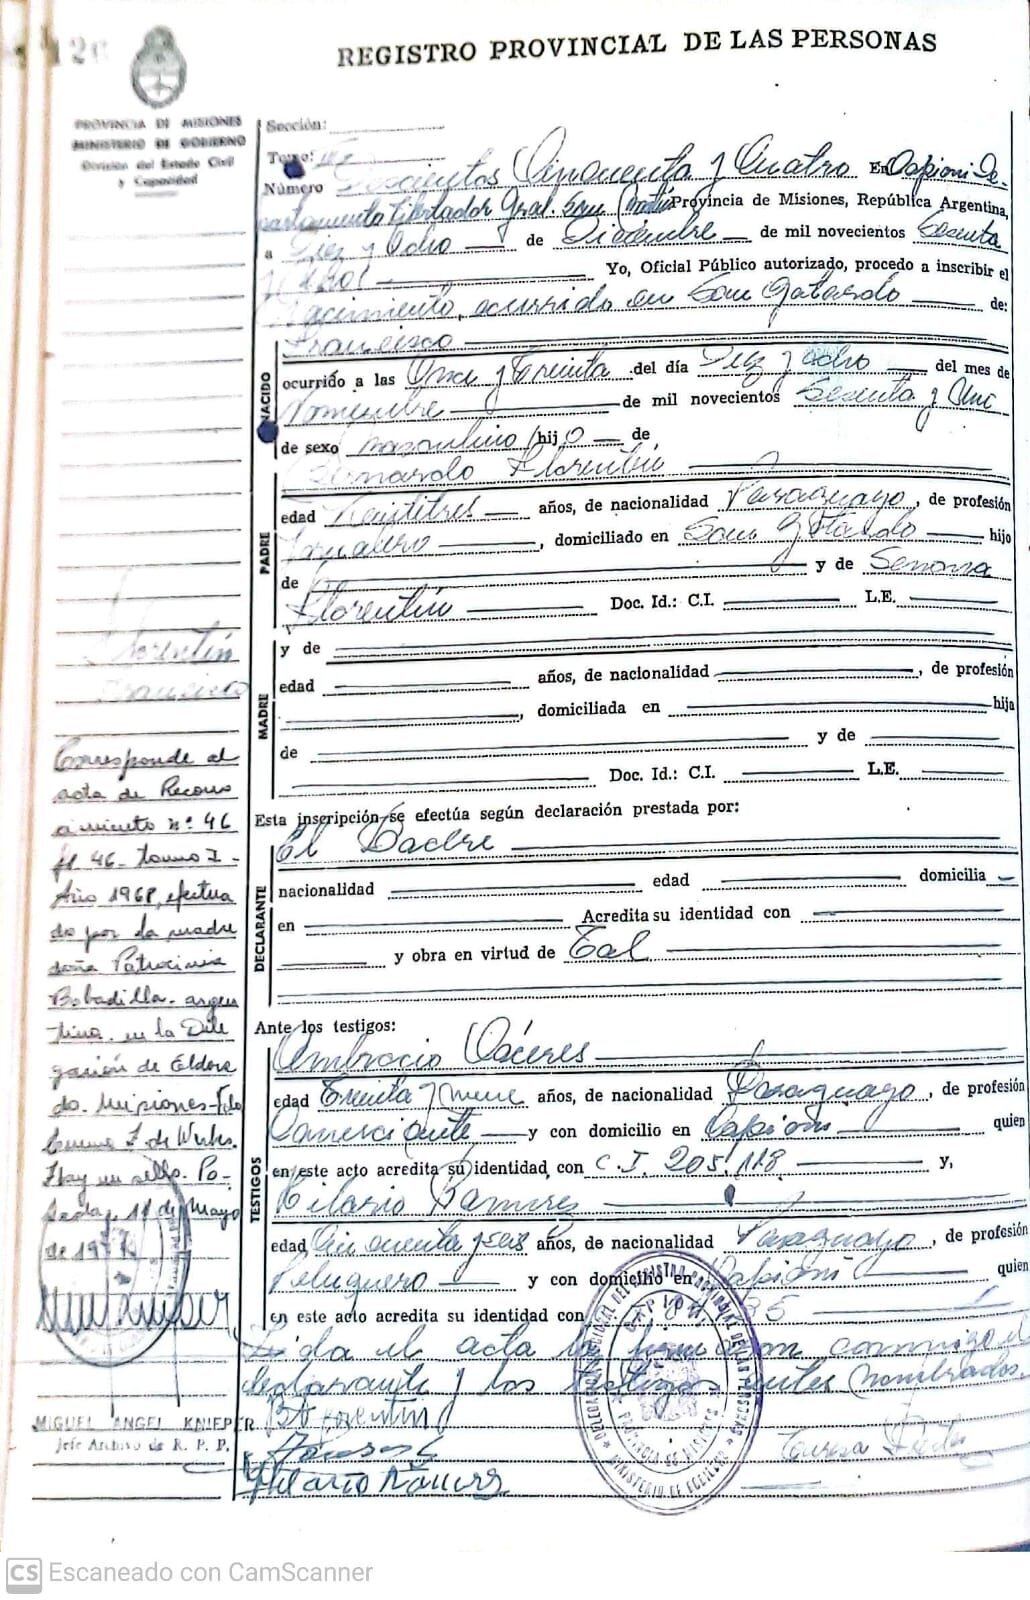 REGISTRO PROVINCIAL DE LAS PERSONAS
PROVINCIA DE MISIONES
MINISTERIO DE GOBIERNO
Division del Estado Civil
y Capacidad
Sección:
Tomo:
Número Doscientos Cincuenta y Cuatro En Capioví De-
partamento Libertador Gral. San Martín Provincia de Misiones, República Argentina,
a Diez y Ocho de Diciembre de mil novecientos Sesenta
Yo, Oficial Público autorizado, procedo a inscribir el
Nacimiento, ocurrido en San Gotardo de:
NACIDO
Francisco
ocurrido a las Once y Treinta del día Diez y ocho del mes de
Noviembre de mil novecientos Sesenta y Uno
de sexo masculino hijo de
PADRE
Bernardo Florentín
edad Veintitres años, de nacionalidad Paraguayo, de profesión
Jornalero, domiciliado en San Gotardo hijo
de y de Senona
Florentín Doc. Id.: C.I. L.E.
MADRE
y de
edad años, de nacionalidad , de profesión
, domiciliada en hija
de y de
Doc. Id.: C.I. L.E.
Esta inscripción se efectúa según declaración prestada por:
DECLARANTE
El Padre
nacionalidad edad domicilia
en Acredita su identidad con
y obra en virtud de Tal
Ante los testigos:
TESTIGOS
Ambrocio Cáceres
edad Treinta y nueve años, de nacionalidad Paraguayo, de profesión
Comerciante y con domicilio en Capioví quien
en este acto acredita su identidad con C.I. 205.118 y,
Hilario Ramires
edad Cincuenta y seis años, de nacionalidad Paraguayo, de profesión
Peluquero y con domicilio en Capioví quien
en este acto acredita su identidad con
Leida el acta la firman conmigo el
declarante y los testigos antes nombrados.
B. Florentín
Hilario Ramires
Teresa
Florentín
Francisco
Corresponde al
acta de Recono
cimiento nº 46
fº 46- tomo I-
Año 1968, efectua
do por la madre
doña Patrocinia
Bobadilla- argen
tina- en la Dele
gación de Eldora
do. Misiones-Fdo
Hay un sello. Po-
sadas, 11 de Mayo
de 1977
MIGUEL ANGEL KNIEPER
Jefe Archivo de R. P. P.
CAPIOVI
PROVINCIA DE MISIONES
MINISTERIO DE GOBIERNO
CS Escaneado con CamScanner